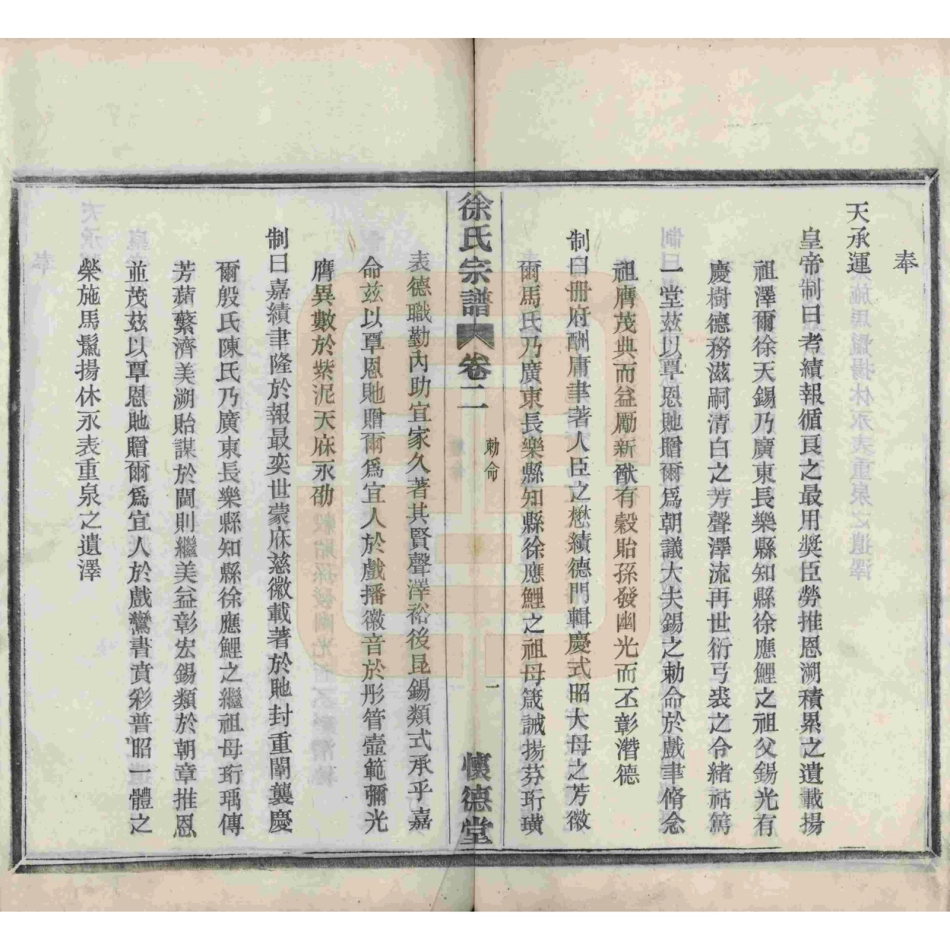 奉
天承運
皇帝制曰考績報循良之最用奬臣勞推恩溯積累之遺載揚
祖澤爾徐天錫乃廣東長樂縣知縣徐應鯉之祖父錫光有
慶樹德務滋嗣清白之芳聲澤流再世衍弓裘之令緒祜篤
一堂茲以覃恩貤贈爾爲朝議大夫錫之勅命於戲聿脩念
祖膺茂典而益勵新猷有穀貽孫發幽光而丕彰潛德
制曰冊府酬庸聿著人臣之懋績德門輯慶式昭大母之芳徽
爾馬氏乃廣東長樂縣知縣徐應鯉之祖母箴誠揚芬珩璜
徐氏宗譜 卷二 勅命 一 懷德堂
表德職勤內助宜家久著其賢聲澤裕後昆錫類式承乎嘉
命兹以覃恩貤贈爾爲宜人於戲播徽音於彤管壼範彌光
膺異數於紫泥天庥永劭
制曰嘉績聿隆於報最奕世蒙庥慈徽載著於貤封重闈襲慶
爾殷氏陳氏乃廣東長樂縣知縣徐應鯉之繼祖母珩瑀傳
芳蘋蘩濟美溯貽謀於閫則繼美益彰宏錫類於朝章推恩
並茂茲以覃恩貤贈爾爲宜人於戲鸞書賁彩普昭一體之
榮施馬鬣揚休永表重泉之遺澤